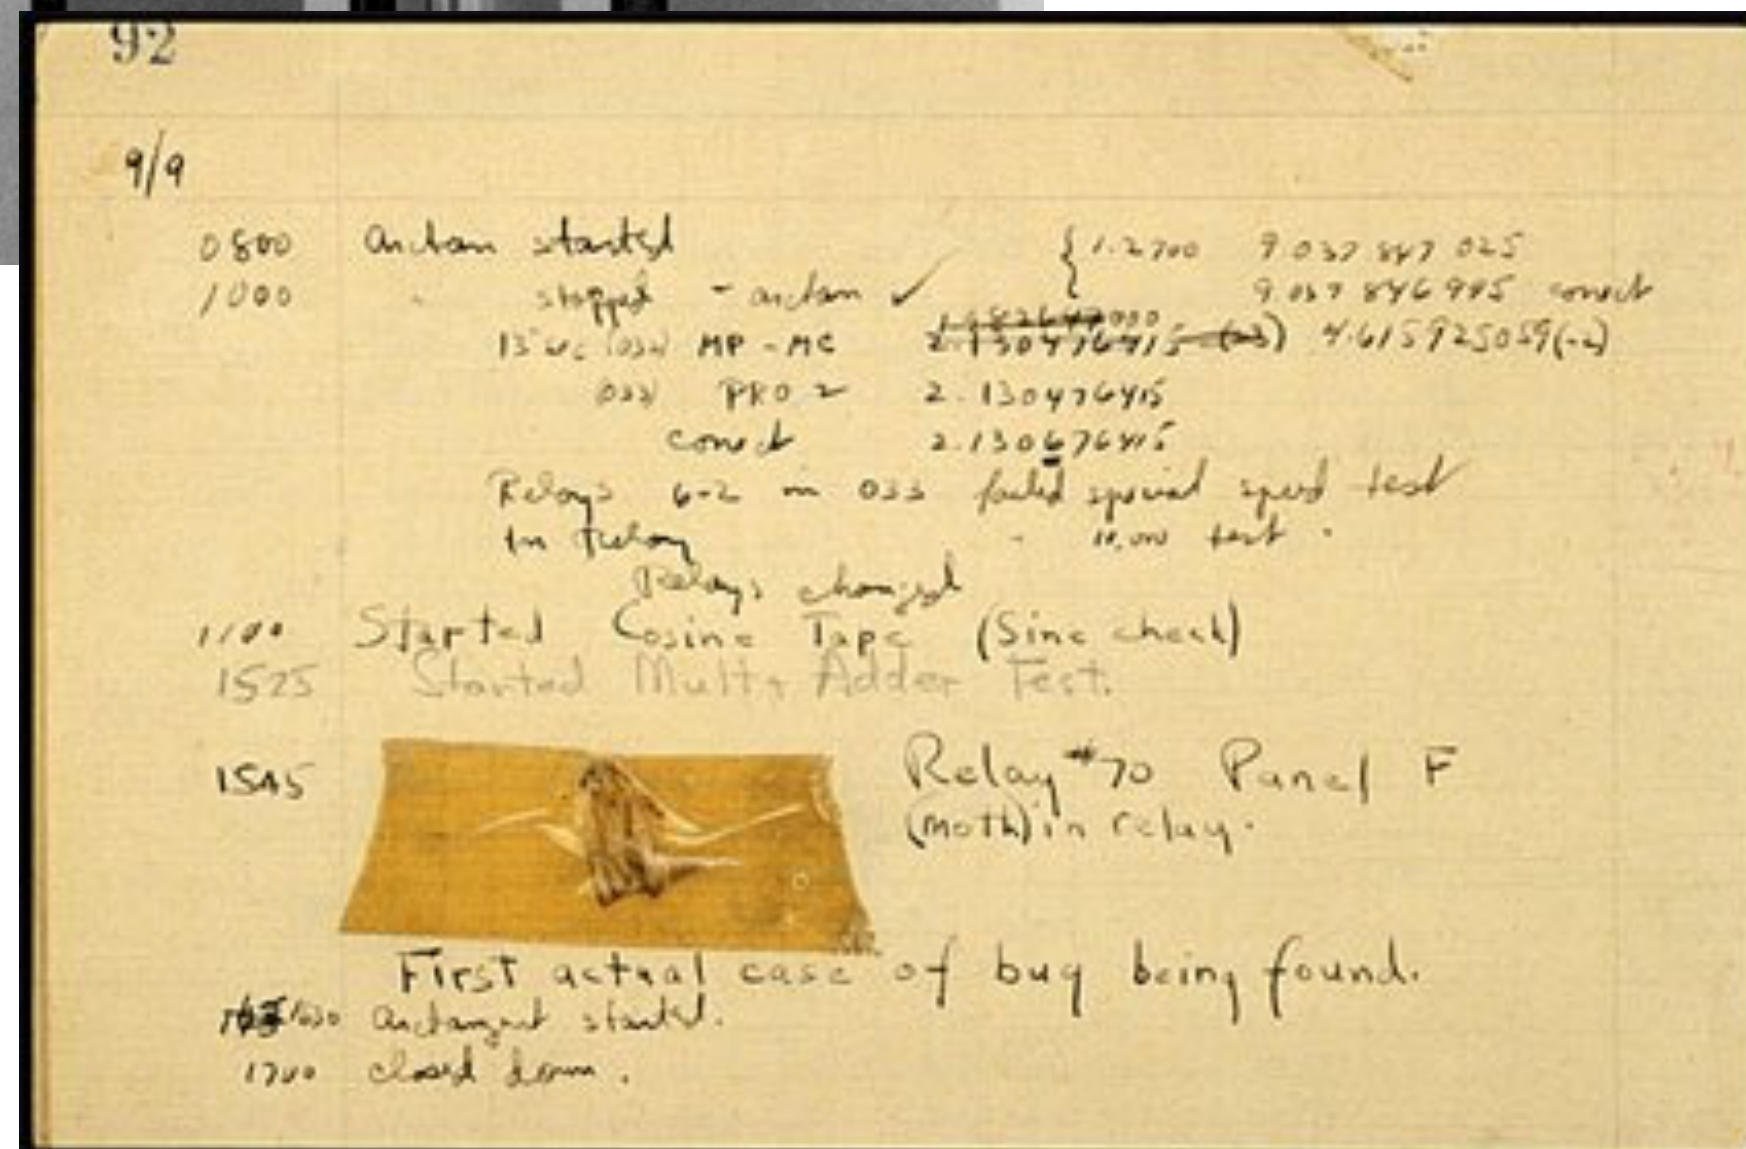 92
9/9
0800 arctan started { 1.2700 9.037 847 025
1000 " stopped - arctan ✓ 9.037 846 995 correct
13"uc (032) MP - MC 1.982647000 2.130476415 (-3) 4.615925059(-2)
033) PRO 2 2.130476415
correct 2.130676415
Relays 6-2 in 033 failed special speed test
In Relay " 10,000 test .
Relays changed
1100 Started Cosine Tape (Sine check)
1525 Started Mult+ Adder Test.
1545 Relay #70 Panel F
(moth) in relay.
First actual case of bug being found.
1630 arctangent started.
1700 closed down.